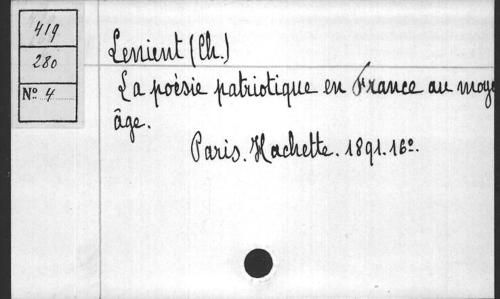 419
280
Nº 4
Lenient (Ch.)
La poésie patriotique en France au moye
âge.
Paris. Hachette. 1891. 16º.